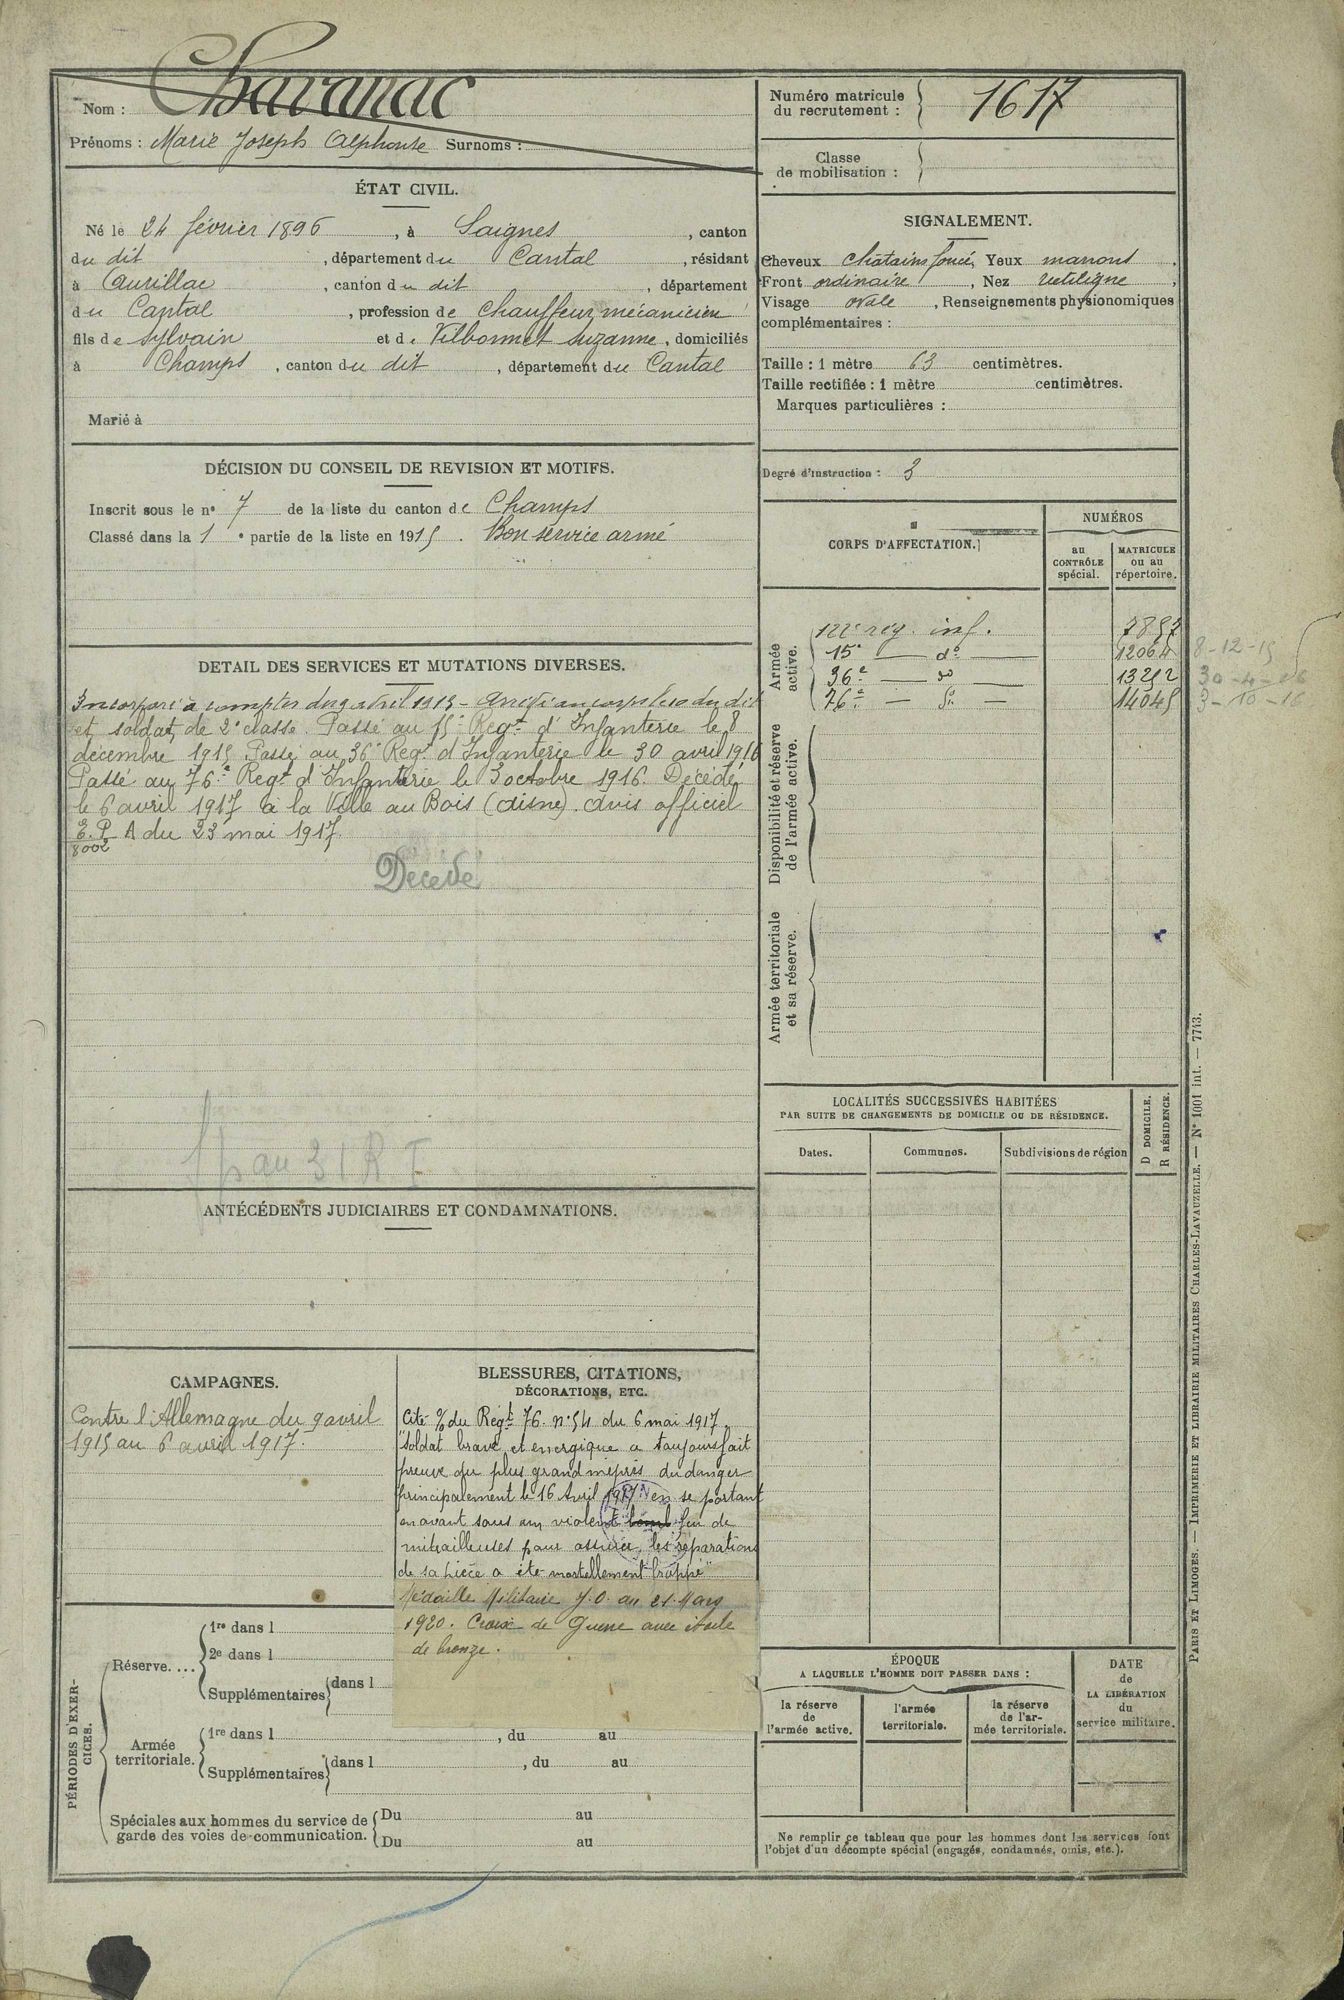 Nom : Chavanac
Prénoms : Marie Joseph Alphonse Surnoms :
ÉTAT CIVIL.
Né le 24 février 1896, à Saignes, canton
du dit, département du Cantal, résidant
à Aurillac, canton du dit, département
du Cantal, profession de chauffeur mécanicien
fils de Sylvain et de Vilbonnet Suzanne, domiciliés
à Champs, canton du dit, département du Cantal
Marié à
DÉCISION DU CONSEIL DE REVISION ET MOTIFS.
Inscrit sous le n° 7 de la liste du canton de Champs
Classé dans la 1e partie de la liste en 1915. Bon service armé
DETAIL DES SERVICES ET MUTATIONS DIVERSES.
Incorporé à compter du 9 avril 1915 - Arrivé au corps le 10 du dit
et soldat de 2e classe. Passé au 15e Regt d'Infanterie le 8
décembre 1915. Passé au 36e Regt d'Infanterie le 30 avril 1916
Passé au 76e Regt d'Infanterie le 3 octobre 1916. Décédé
le 6 avril 1917 à la Ville au Bois (Aisne). Avis officiel
E.P. A du 23 mai 1917.
8002
Décédé
p au 31 R I
ANTÉCÉDENTS JUDICIAIRES ET CONDAMNATIONS.
CAMPAGNES.
Contre l'Allemagne du 9 avril
1915 au 6 avril 1917.
BLESSURES, CITATIONS,
DÉCORATIONS, ETC.
Cité % du Regt 76. n° 54 du 6 mai 1917.
"Soldat brave et energique a toujours fait
preuve du plus grand mépris du danger
principalement le 16 Avril 1917 en se portant
en avant sous un violent feu de
mitrailleuses pour assurer les réparations
de sa pièce a été mortellement frappé"
Médaille Militaire J.O. du 21 Mars
1920. Croix de Guerre avec étoile
de bronze.
PÉRIODES D'EXERCICES.
Réserve....
1re dans l
2e dans l
Supplémentaires dans l
Armée territoriale.
1re dans l , du au
Supplémentaires dans l , du au
Spéciales aux hommes du service de garde des voies de communication.
Du au
Du au
Numéro matricule du recrutement : 1617
Classe de mobilisation :
SIGNALEMENT.
Cheveux chatains foncé, Yeux marrons,
Front ordinaire, Nez rectiligne,
Visage ovale, Renseignements physionomiques
complémentaires :
Taille : 1 mètre 63 centimètres.
Taille rectifiée : 1 mètre centimètres.
Marques particulières :
Degré d'instruction : 3
CORPS D'AFFECTATION.
NUMÉROS
au CONTRÔLE spécial.
MATRICULE ou au répertoire.
Armée active.
reg. inf.
15e — do — 12064 8-12-15
36e — do — 13252 30-4-16
76e — do — 14045 3-10-16
Disponibilité et réserve de l'armée active.
Armée territoriale et sa réserve.
LOCALITÉS SUCCESSIVES HABITÉES
PAR SUITE DE CHANGEMENTS DE DOMICILE OU DE RÉSIDENCE.
Dates. Communes. Subdivisions de région
D DOMICILE.
R RÉSIDENCE.
ÉPOQUE
A LAQUELLE L'HOMME DOIT PASSER DANS :
la réserve de l'armée active.
l'armée territoriale.
la réserve de l'armée territoriale.
DATE de LA LIBÉRATION du service militaire.
Ne remplir ce tableau que pour les hommes dont les services font
l'objet d'un décompte spécial (engagés, condamnés, omis, etc.).
PARIS ET LIMOGES. — IMPRIMERIE ET LIBRAIRIE MILITAIRES CHARLES-LAVAUZELLE. — N° 1001 int. — 7713.